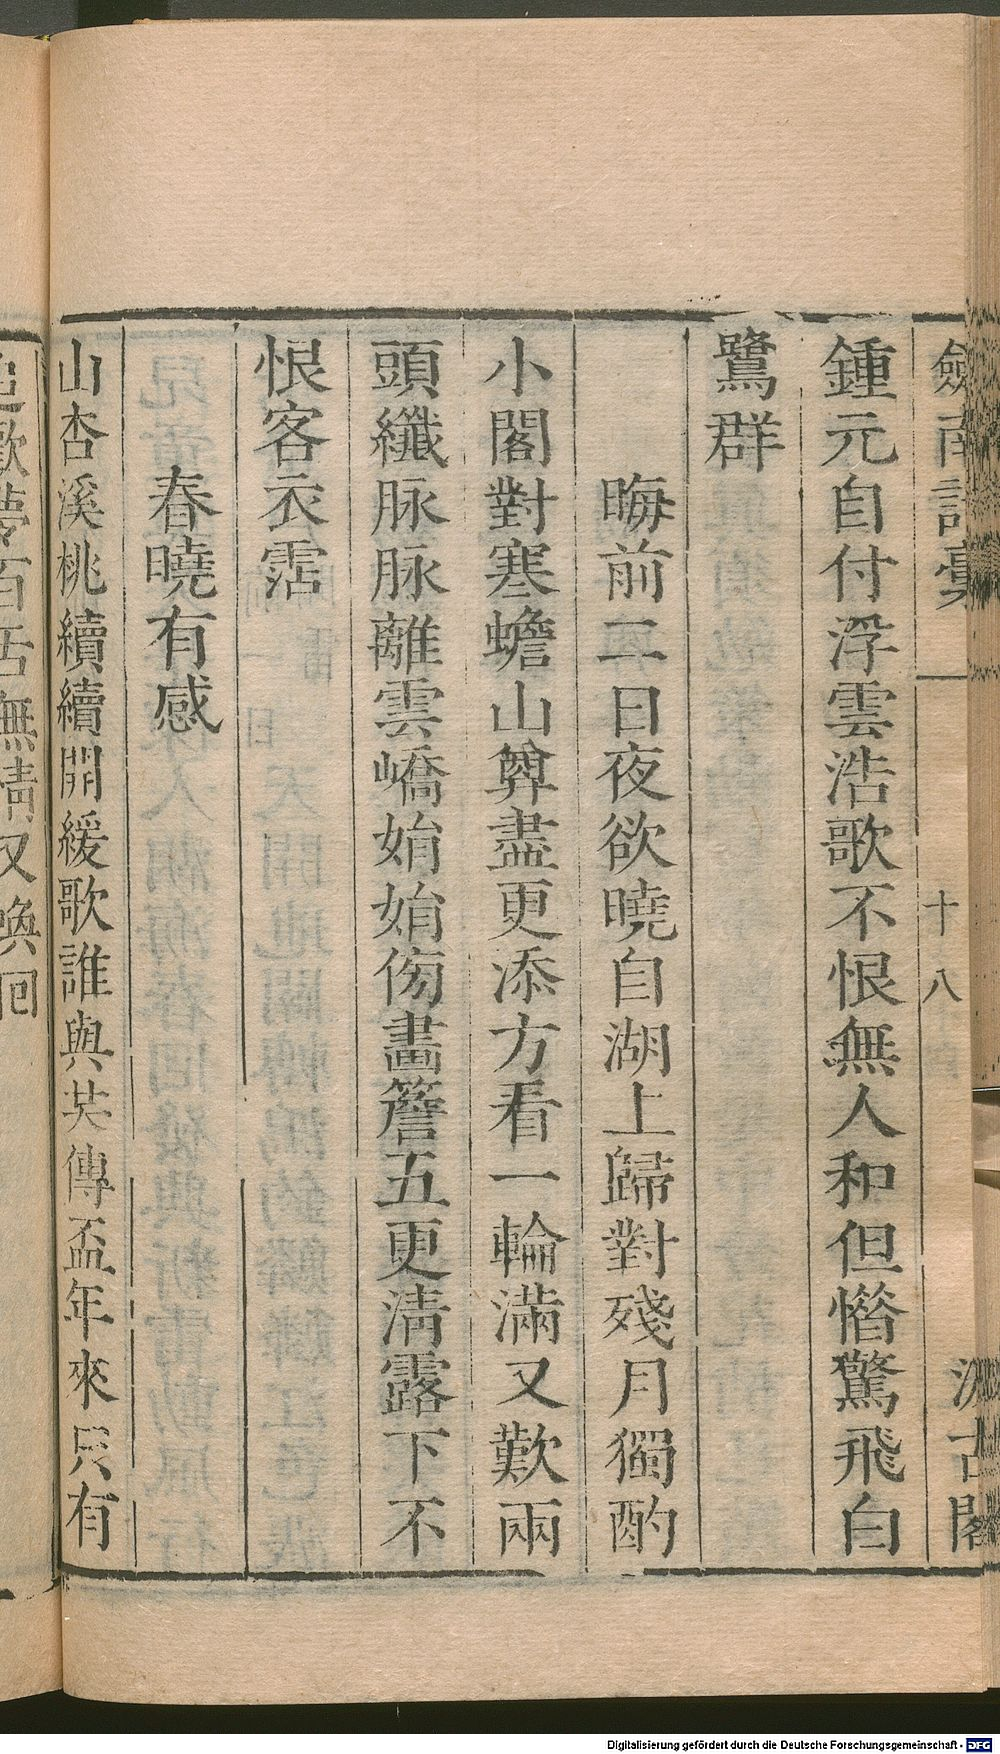 劍南詩稾
十八
汲古閣
鍾元自付浮雲浩歌不恨無人和但憯驚飛白
鷺群
晦前二日夜欲曉自湖上歸對殘月獨酌
小閣對寒蟾山罇盡更添方看一輪滿又歎兩
頭纖脉脉離雲嶠娟娟傍畫簷五更淸露下不
恨客衣霑
春曉有感
山杏溪桃續續開緩歌誰與共傳盃年來只有
追歡夢百舌無情又喚回
Digitalisierung gefördert durch die Deutsche Forschungsgemeinschaft - DFG